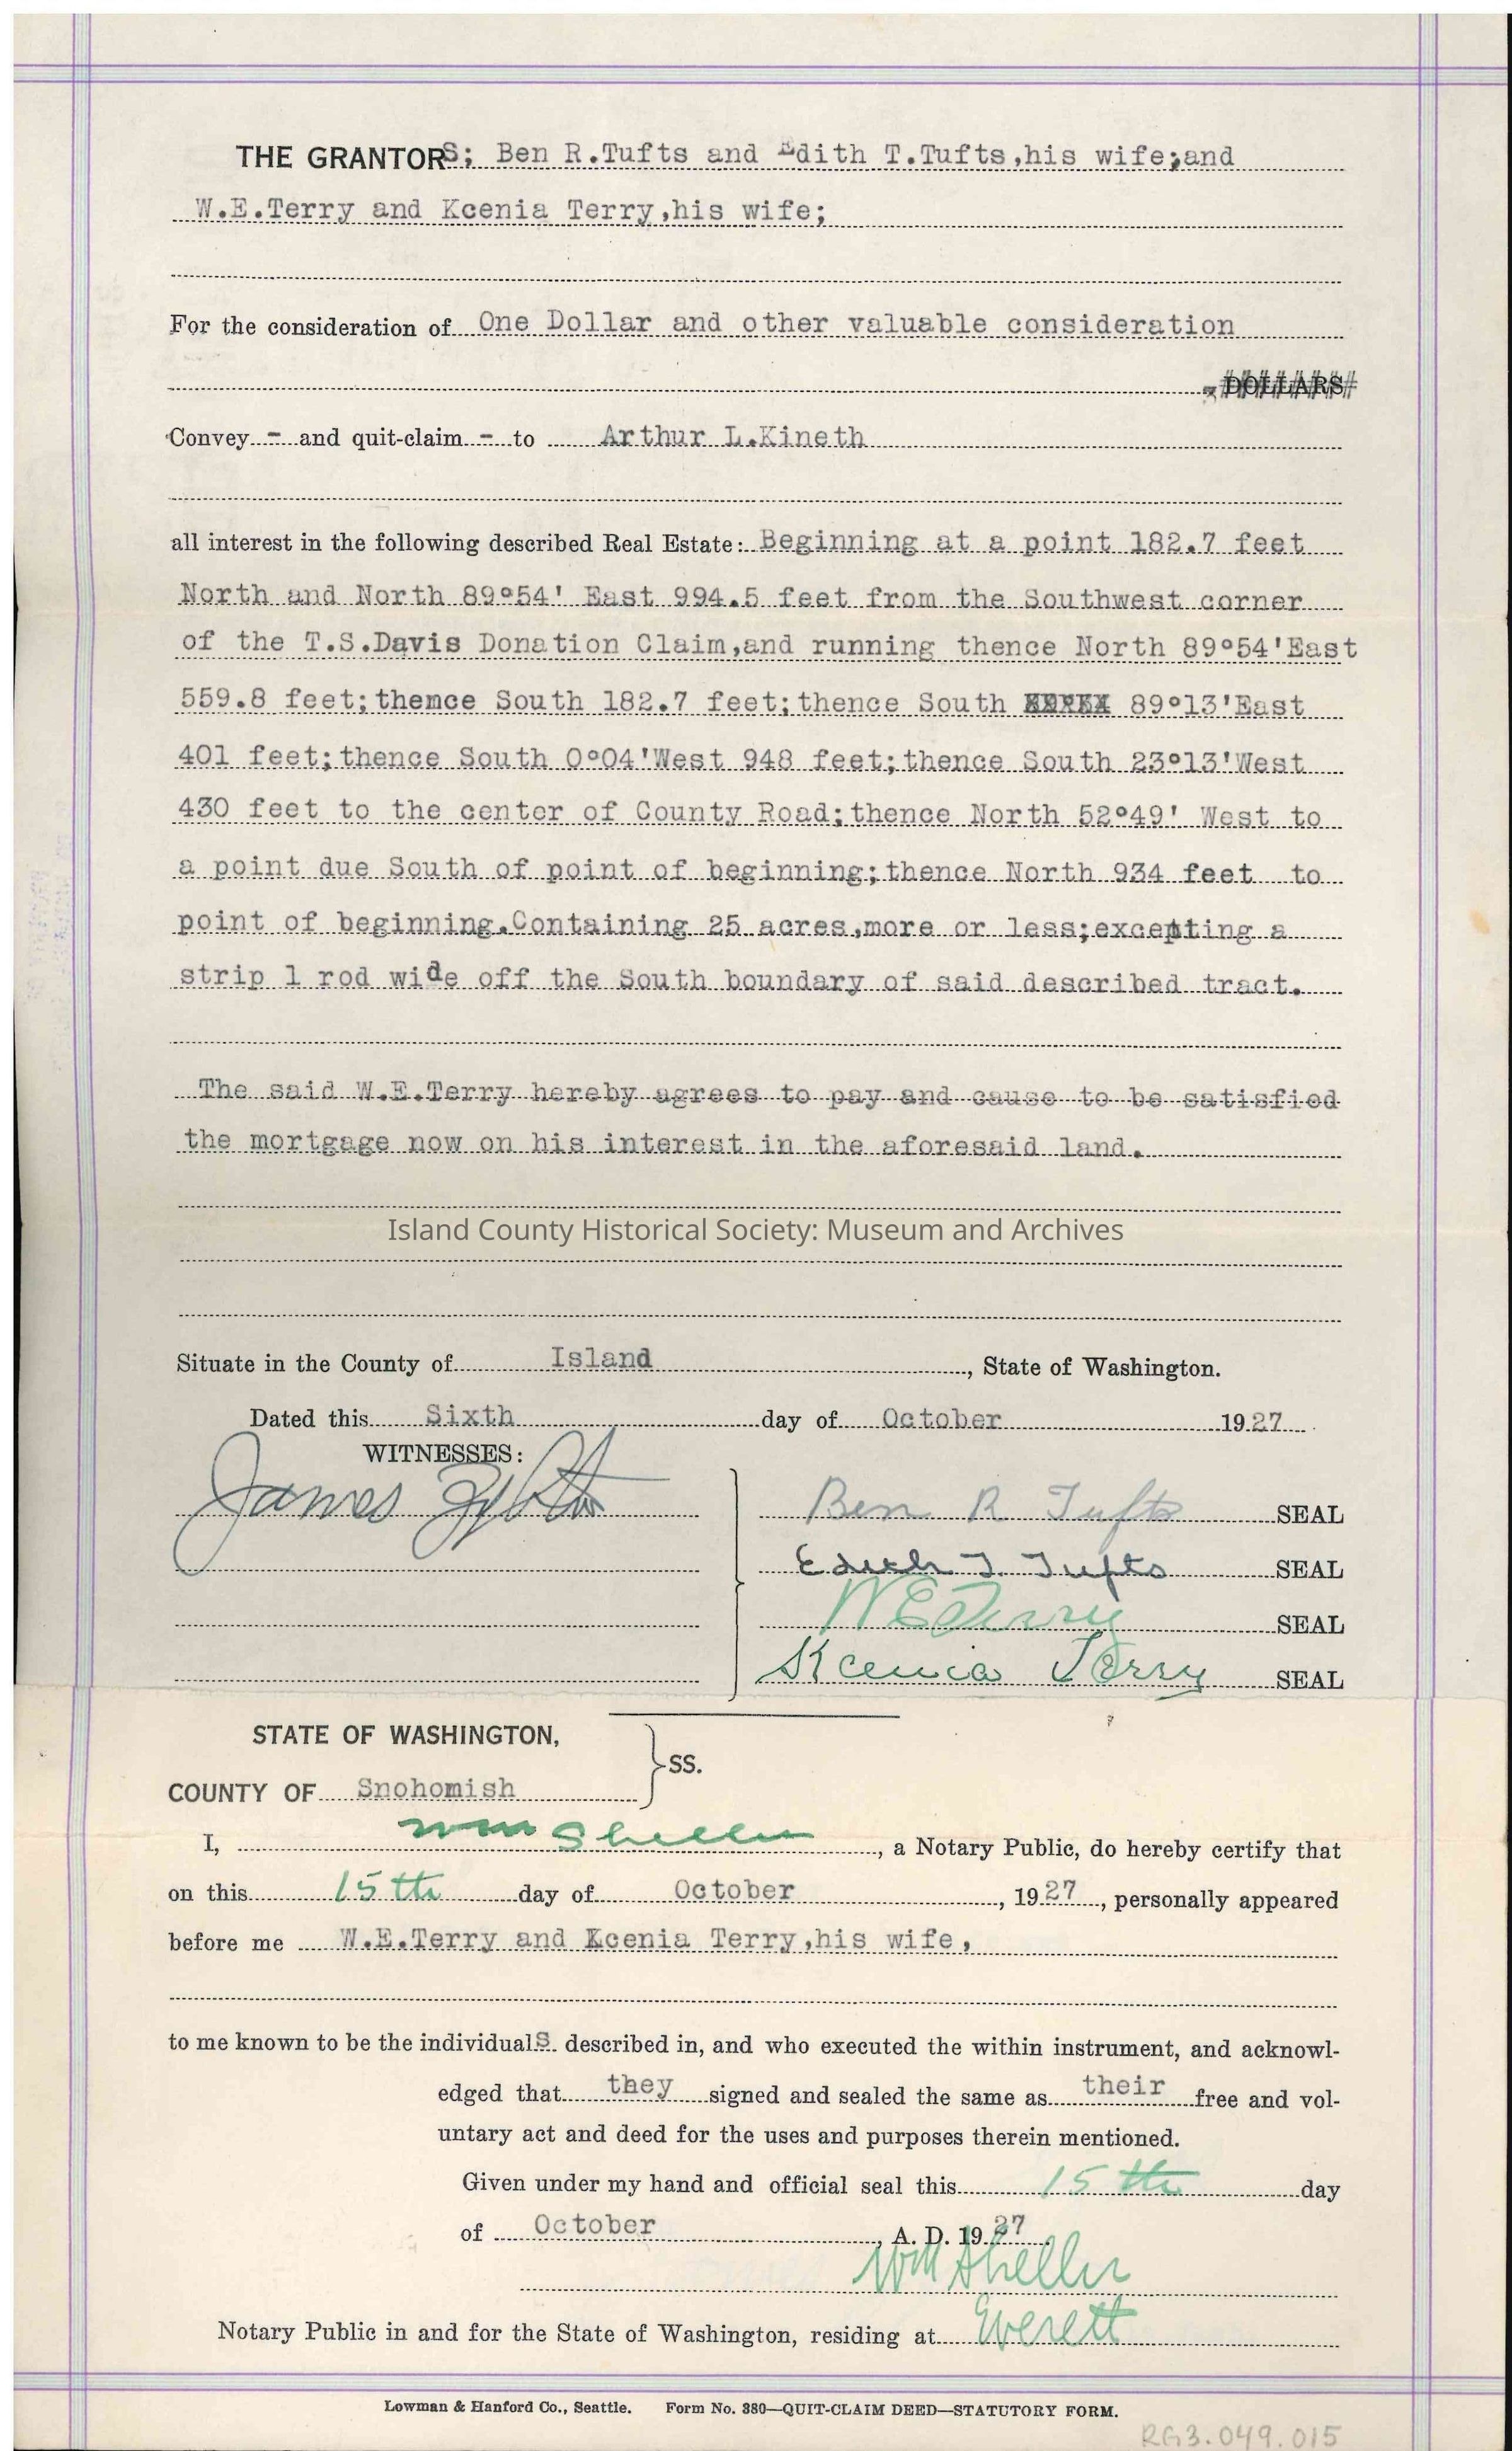 THE GRANTORS; Ben R.Tufts and Edith T.Tufts,his wife;and
W.E.Terry and Kcenia Terry,his wife;
For the consideration of One Dollar and other valuable consideration
DOLLARS
Convey - and quit-claim - to Arthur L.Kineth
all interest in the following described Real Estate: Beginning at a point 182.7 feet
North and North 89°54' East 994.5 feet from the Southwest corner
of the T.S.Davis Donation Claim,and running thence North 89°54'East
559.8 feet;themce South 182.7 feet;thence South 89°13'East
401 feet;thence South 0°04'West 948 feet;thence South 23°13'West
430 feet to the center of County Road;thence North 52°49' West to
a point due South of point of beginning;thence North 934 feet to
point of beginning.Containing 25 acres,more or less;excepting a
strip 1 rod wide off the South boundary of said described tract.
The said W.E.Terry hereby agrees to pay and cause to be satisfied
the mortgage now on his interest in the aforesaid land.
Island County Historical Society: Museum and Archives
Situate in the County of Island, State of Washington.
Dated this Sixth day of October 1927
WITNESSES:
James
Ben R Tufts SEAL
Edith T. Tufts SEAL
W E Terry SEAL
Kcenia Terry SEAL
STATE OF WASHINGTON,
SS.
COUNTY OF Snohomish
I, Wm Sheller, a Notary Public, do hereby certify that
on this 15th day of October, 1927, personally appeared
before me W.E.Terry and Kcenia Terry,his wife,
to me known to be the individualS described in, and who executed the within instrument, and acknowl-
edged that they signed and sealed the same as their free and vol-
untary act and deed for the uses and purposes therein mentioned.
Given under my hand and official seal this 15th day
of October, A. D. 1927
Wm Sheller
Notary Public in and for the State of Washington, residing at Everett
Lowman & Hanford Co., Seattle. Form No. 380—QUIT-CLAIM DEED—STATUTORY FORM.
RG3.049.015